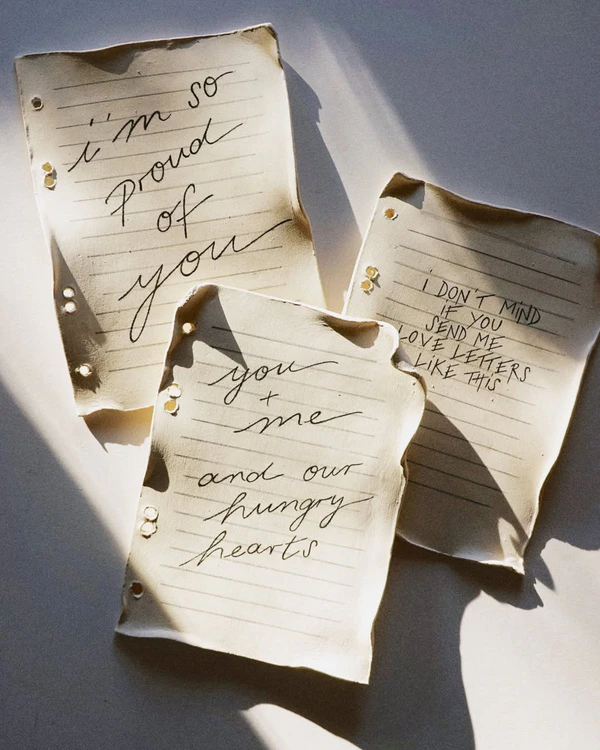 i'm so
proud
of
you
I DON'T MIND
IF YOU
SEND ME
LOVE LETTERS
LIKE THIS
you
+
me
and our
hungry
hearts